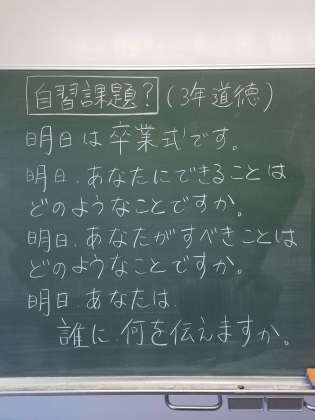 自習課題？（3年道徳）
明日は卒業式です。
明日、あなたにできることは
どのようなことですか。
明日、あなたがすべきことは
どのようなことですか。
明日、あなたは、
誰に、何を伝えますか。